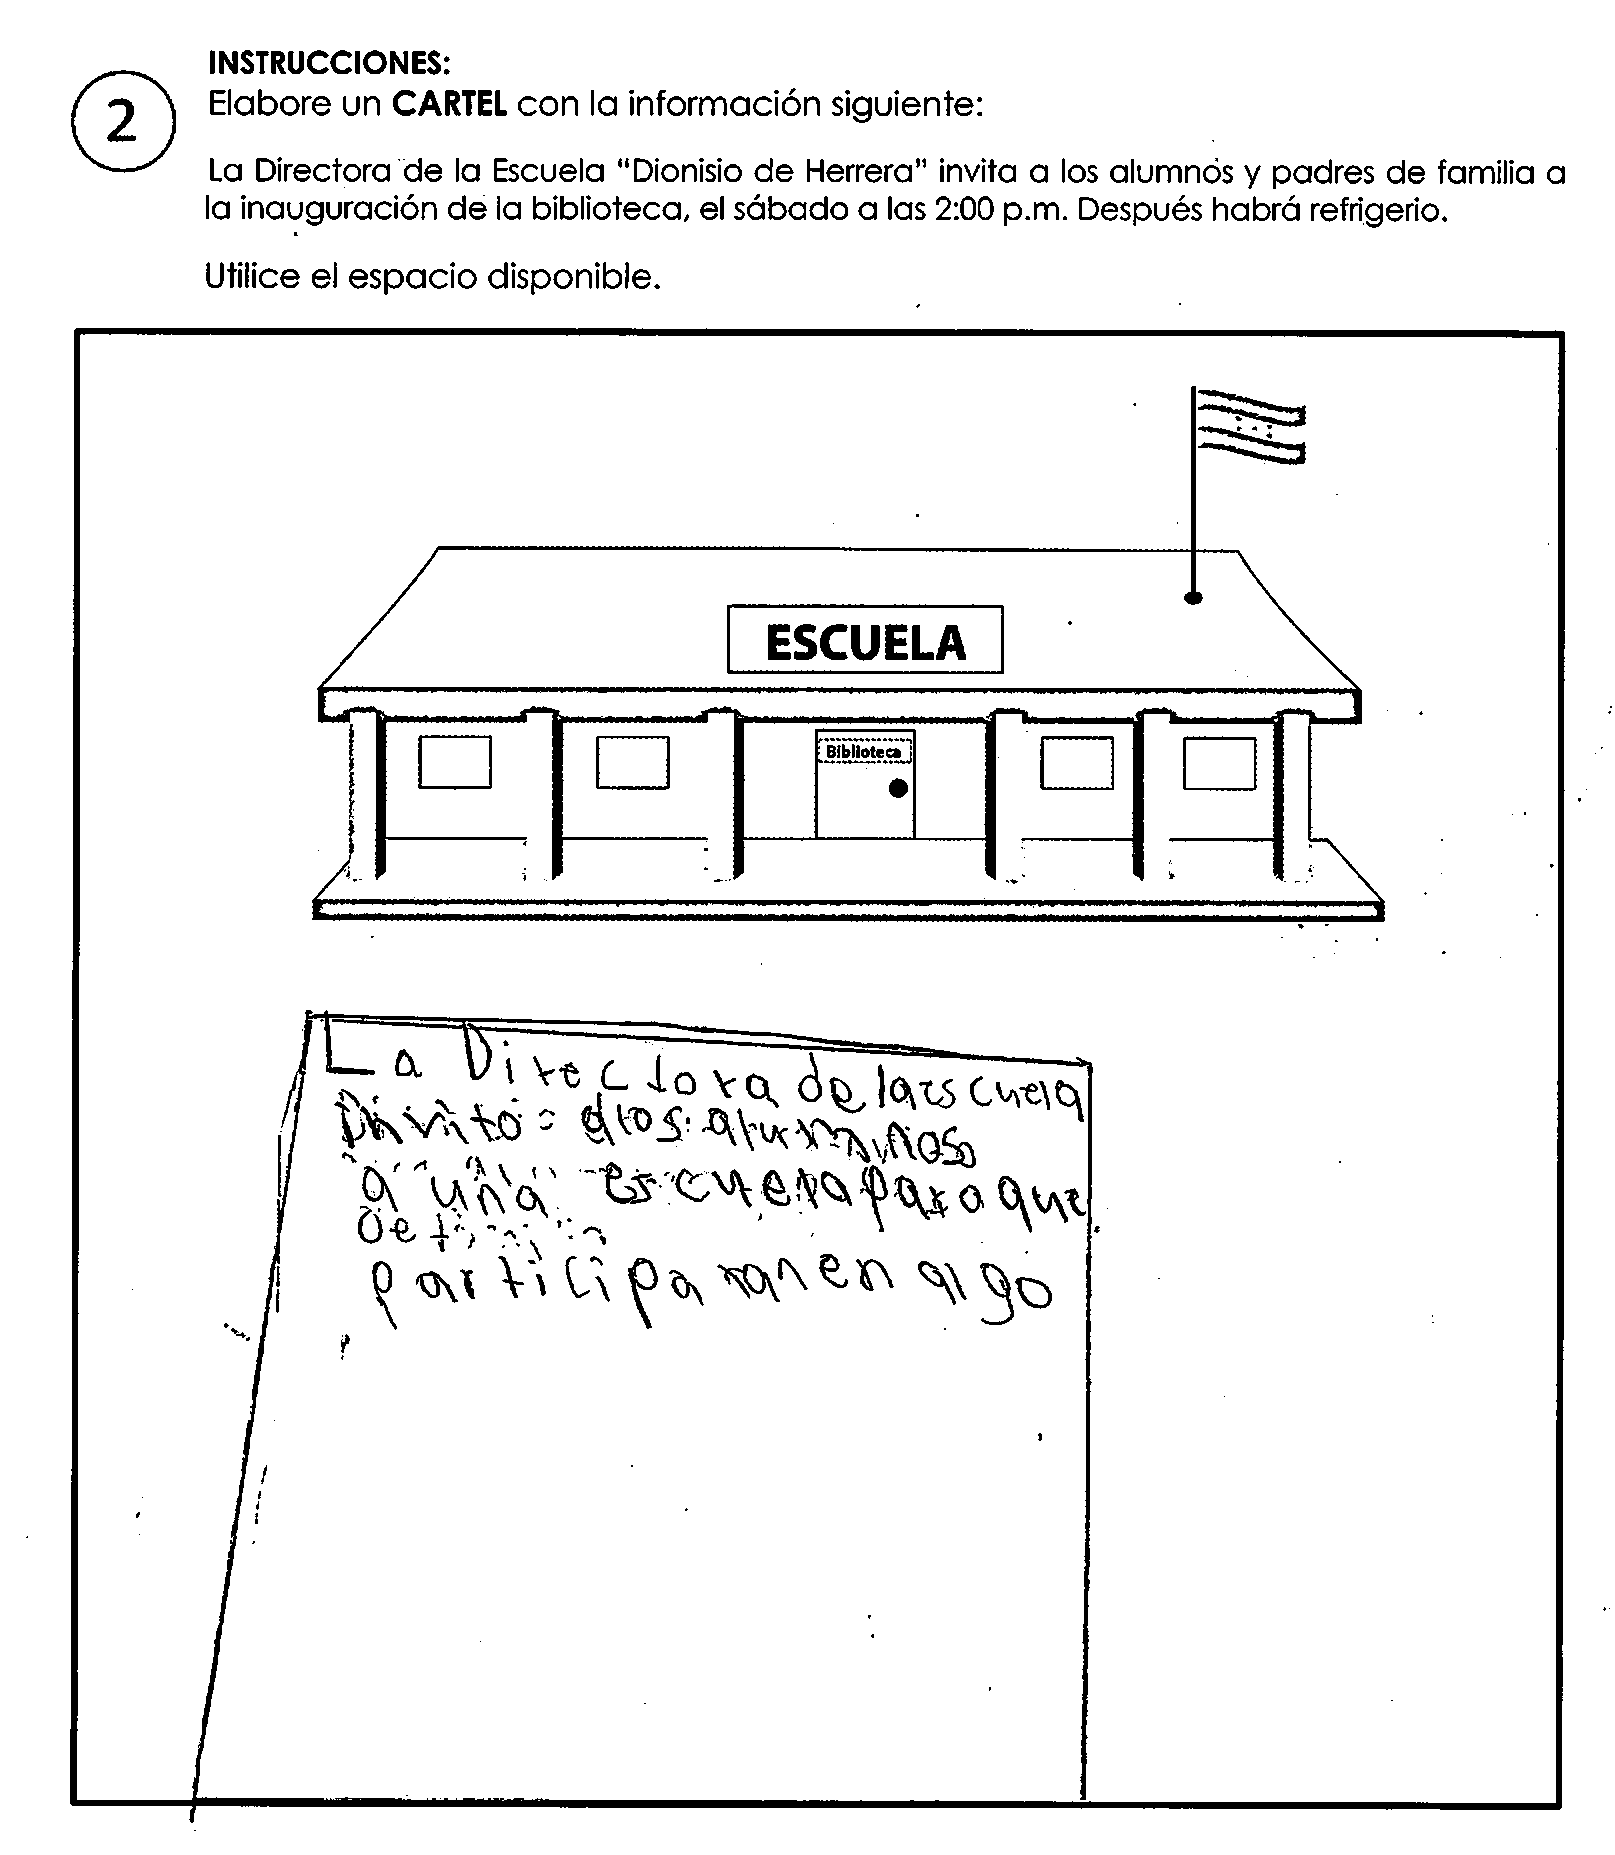 2
INSTRUCCIONES:
Elabore un CARTEL con la información siguiente:
La Directora de la Escuela “Dionisio de Herrera” invita a los alumnos y padres de familia a
la inauguración de la biblioteca, el sábado a las 2:00 p.m. Después habrá refrigerio.
Utilice el espacio disponible.
ESCUELA
Biblioteca
La Directora de la escuela
invito a los alumnos
a una escuela para que
participaran en algo